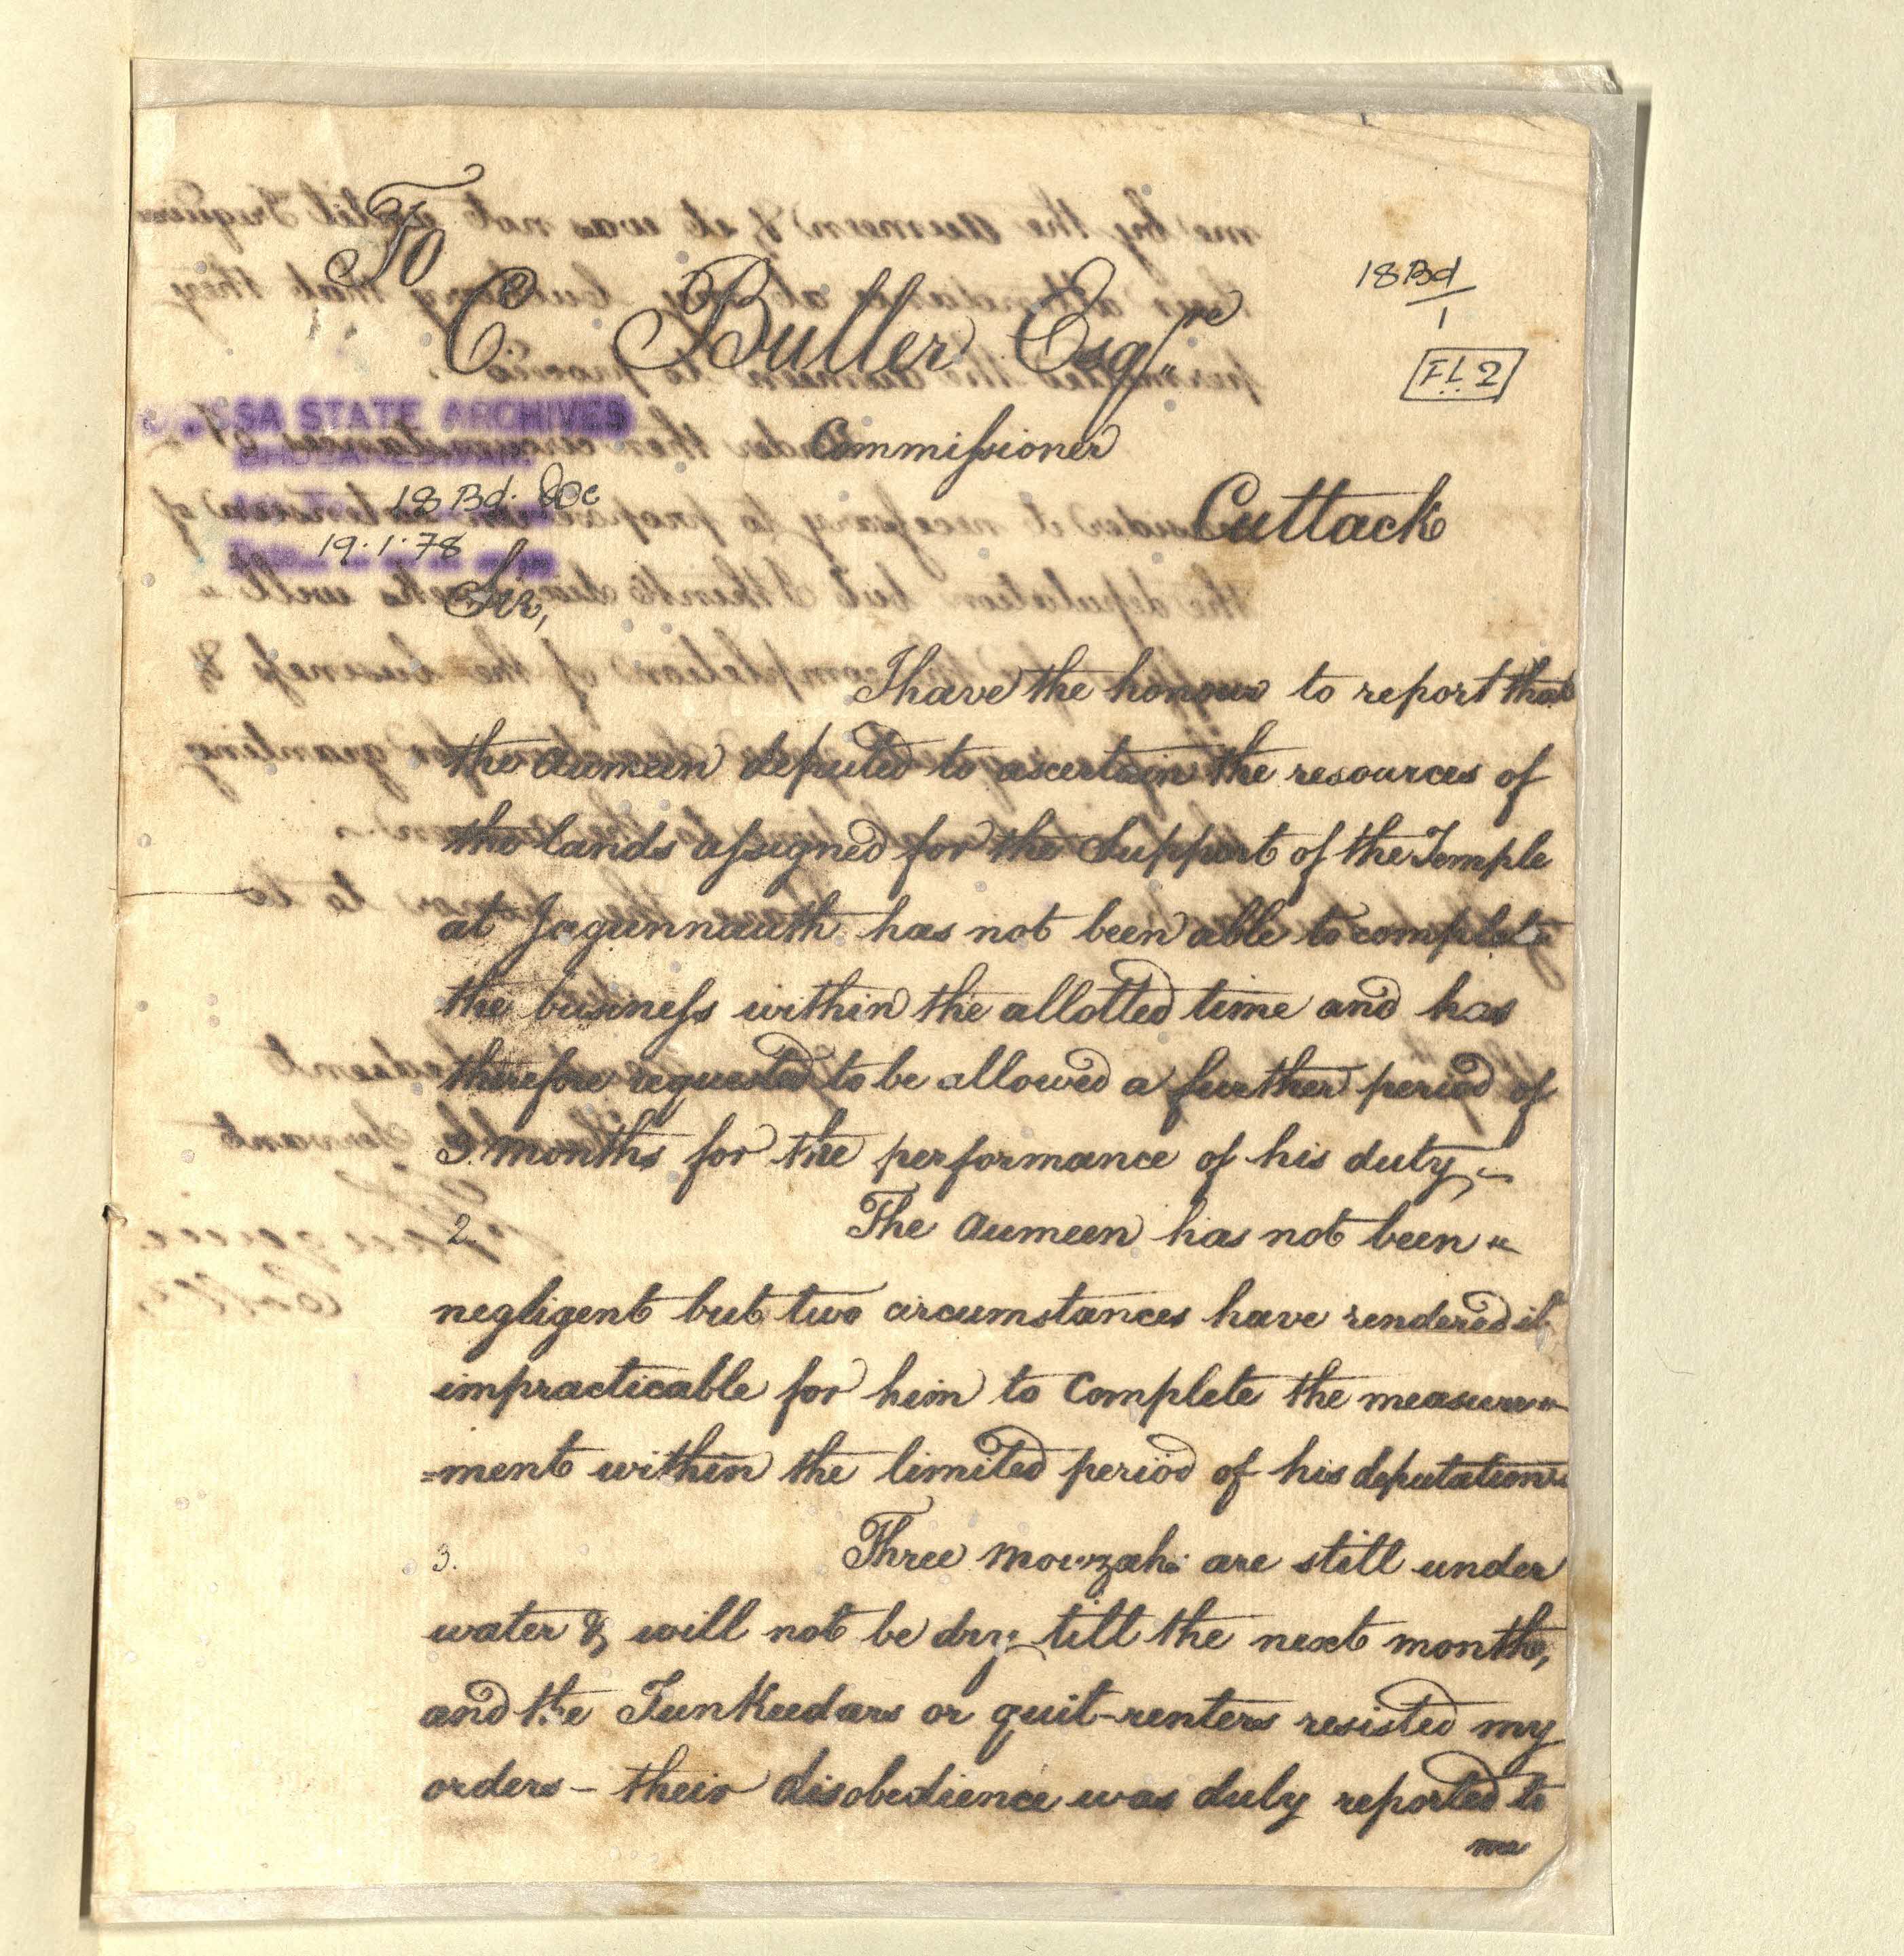 To
C Buller Esqre
18 Bd
1
FL 2
SA STATE ARCHIVES
Commissioner
18 Bd. Doc
Cuttack
19.1.78
Sir,
I have the honour to report that
the Aumeen deputed to ascertain the resources of
the lands assigned for the Support of the Temple
at Jagunnauth has not been able to complete
the business within the allotted time and has
therefore requested to be allowed a further period of
3. months for the performance of his duty
2 The Aumeen has not been
negligent but two circumstances have rendered it
impracticable for him to Complete the measure
=ment within the limited period of his deputation
3. Three Mowzahs are still under
water & will not be dry till the next month,
and the Tunkeedars or quit-renters resisted my
orders - their disobedience was duly reported to
me